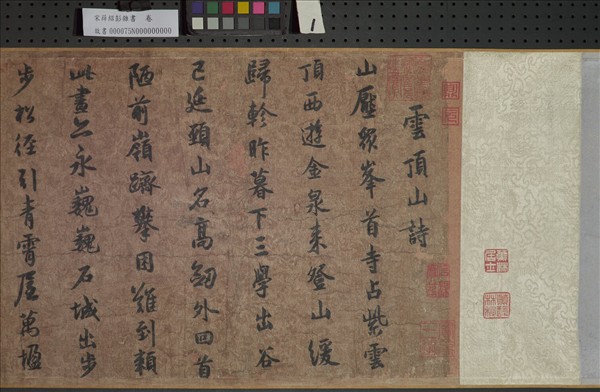 宋薛紹彭雜書　卷
故書000075N000000000
雲頂山詩
山壓眾峯首寺占紫雲
頂西遊金泉來登山緩
歸軫昨暮下三學出谷
已延頸山名高劒外回首
陋前嶺躋攀困難到賴
此晝之永巍巍石城出步
步松徑引青霄屋萬楹